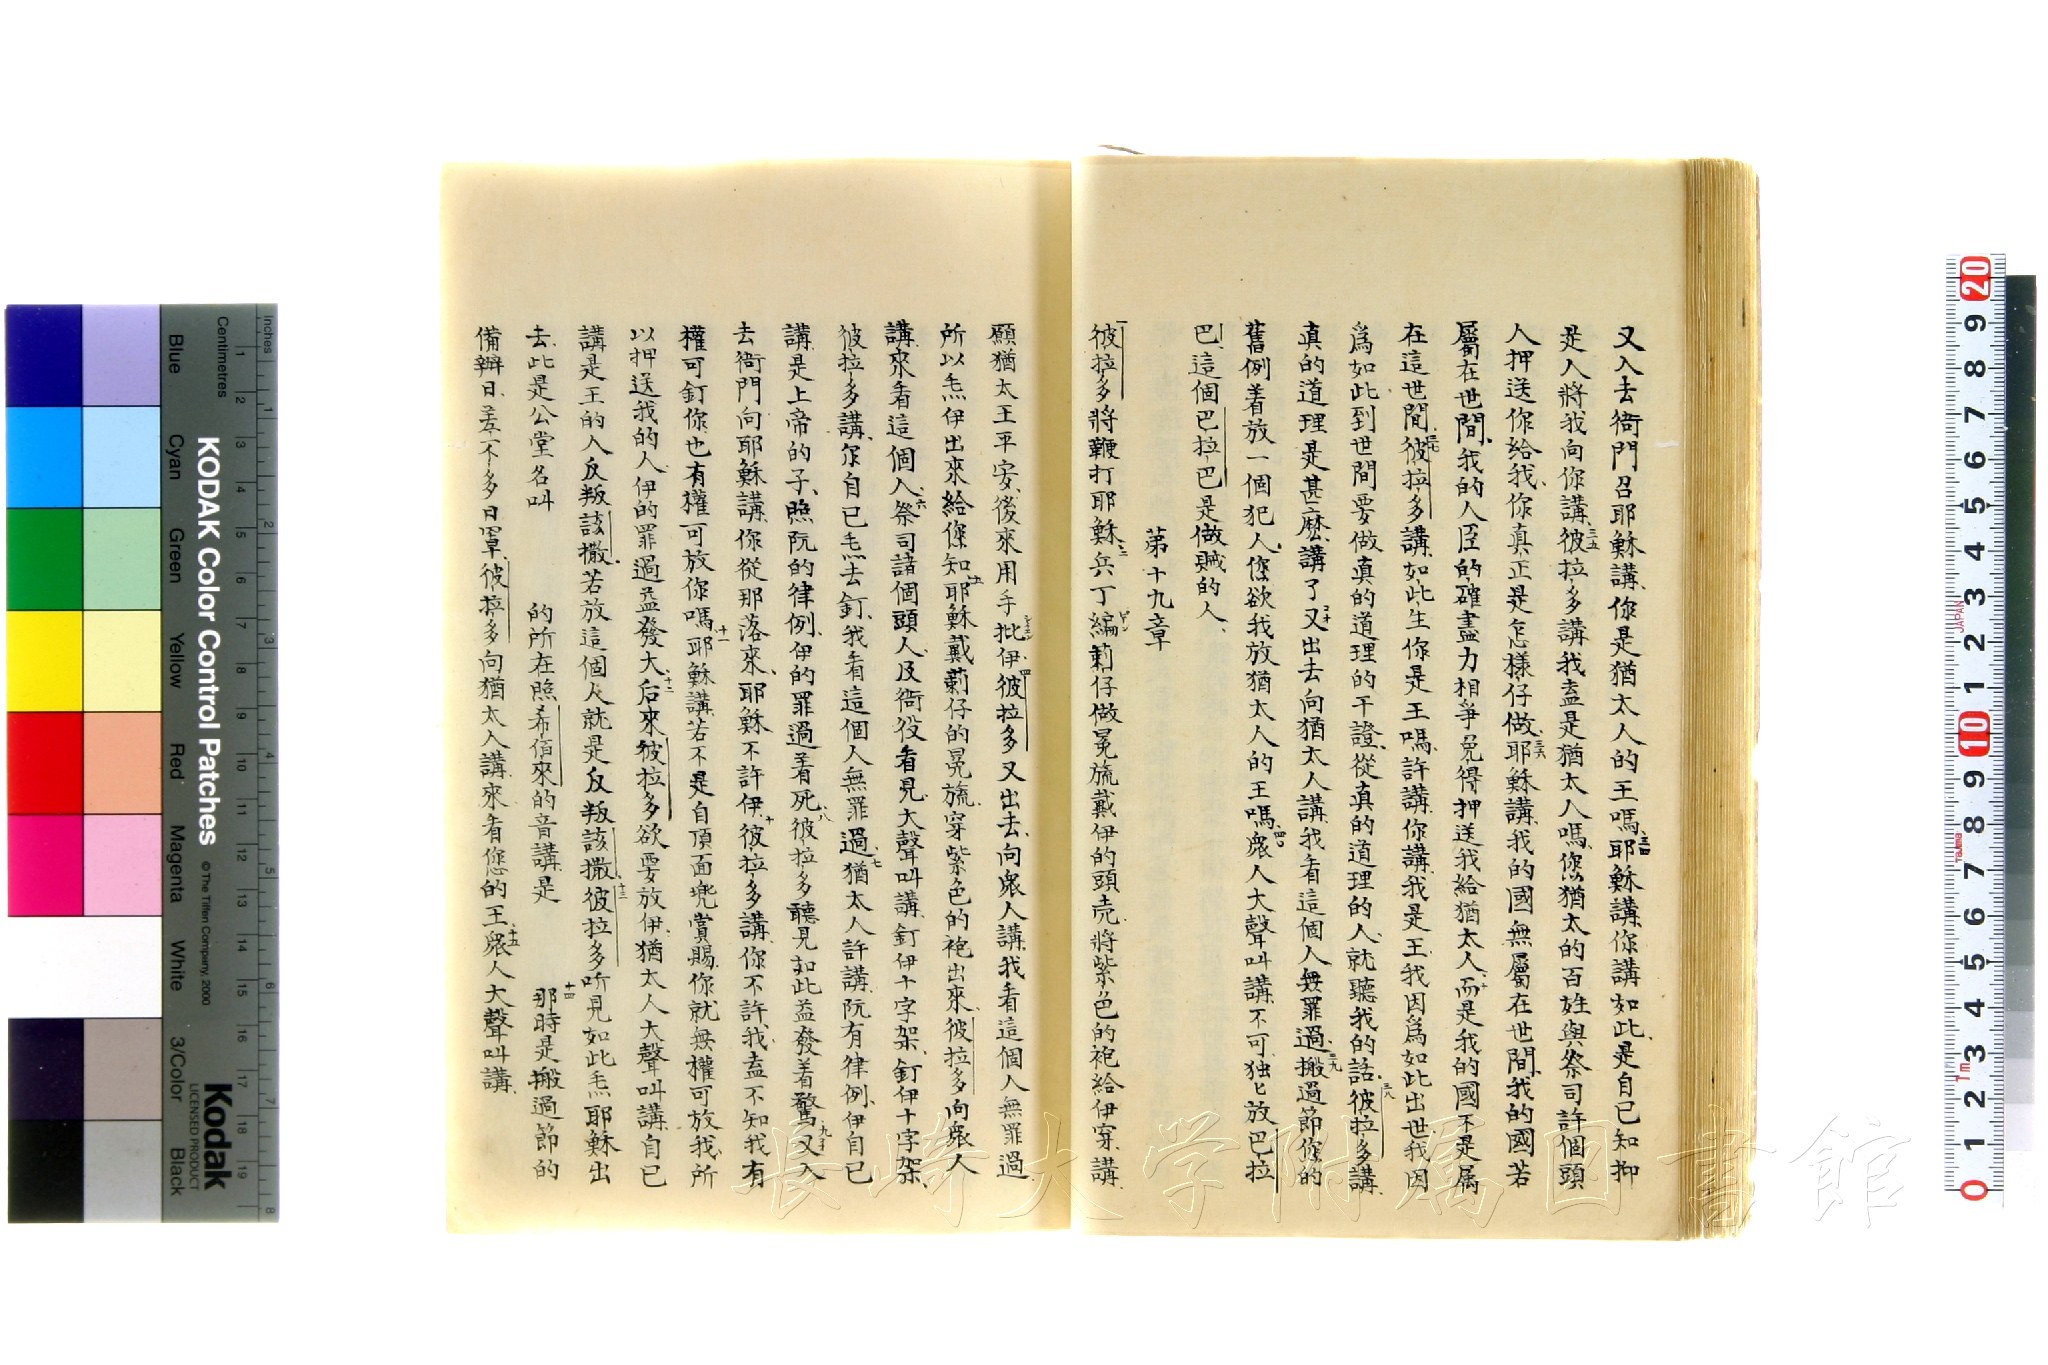 又入去衙門召耶穌講、你是猶太人的王嗎、三四耶穌講、你講如此、是自已知抑
是人將我向你講、三五彼拉多講我盍是猶太人嗎、您猶太的百姓與祭司許個頭
人押送你給我、你真正是怎樣仔做、三六耶穌講、我的國無屬在世間、我的國若
屬在世間、我的人臣的確盡力相爭免得押送我給猶太人、而是我的國不是属
在這世間、三七彼拉多講、如此、生你是王嗎、許講、你講我是王、我因爲如此出世我因
爲如此到世間要做真的道理的干證、從真的道理的人、就聽我的話、三八彼拉多講、
真的道理是甚麽、講了又出去向猶太人講、我看這個人無罪過、三九搬過節你的
舊例着放一個犯人、您欲我放猶太人的王嗎、四十衆人大聲叫講、不可独匕放巴拉
巴、這個巴拉巴是做賊的人、
第十九章
一彼拉多將鞭打耶穌、二兵丁編莿仔做冕旒戴伊的頭壳、將紫色的袍給伊穿、講、
願猶太王平安、後來用手批伊、四彼拉多又出去、向衆人講、我看這個人無罪過
所以𤆬伊出來給您知、五耶穌戴莿仔的冕旒、穿紫色的袍出來、彼拉多向衆人
講、來看這個人、六祭司諸個頭人、及衙役看見、大聲叫講、釘伊十字架、釘伊十字架、
彼拉多講、你自已𤆬去釘、我看這個人無罪過、七猶太人許講、阮有律例、伊自已
講、是上帝的子、照阮的律例、伊的罪過着死、八彼拉多聽見如此益發着驚、九又入
去衙門向耶穌講、你從那落來、耶穌不許伊、十彼拉多講、你不許我、盍不知我有
權可釘你、也有權可放你嗎、十一耶穌講、若不是自頂面兜賞賜、你就無權可放我、所
以押送我的人、伊的罪過益發大、十二后來彼拉多欲要放伊、猶太人大聲叫講、自已
講是王的人反叛該撒、若放這個人就是反叛該撒、十三彼拉多听見如此𤆬耶穌出
去、此是公堂名叫　　的所在照希伯來的音講是　　十四那時是搬過節的
備辦日、差不多日罩、彼拉多向猶太人講、來看您的王、十五衆人大聲叫講、
Kodak
LICENSED PRODUCT
KODAK Color Control Patches
© The Tiffen Company, 2000
Inches
Centimetres
Blue
Cyan
Green
Yellow
Red
Magenta
White
3/Color
Black
長崎大学附属図書館